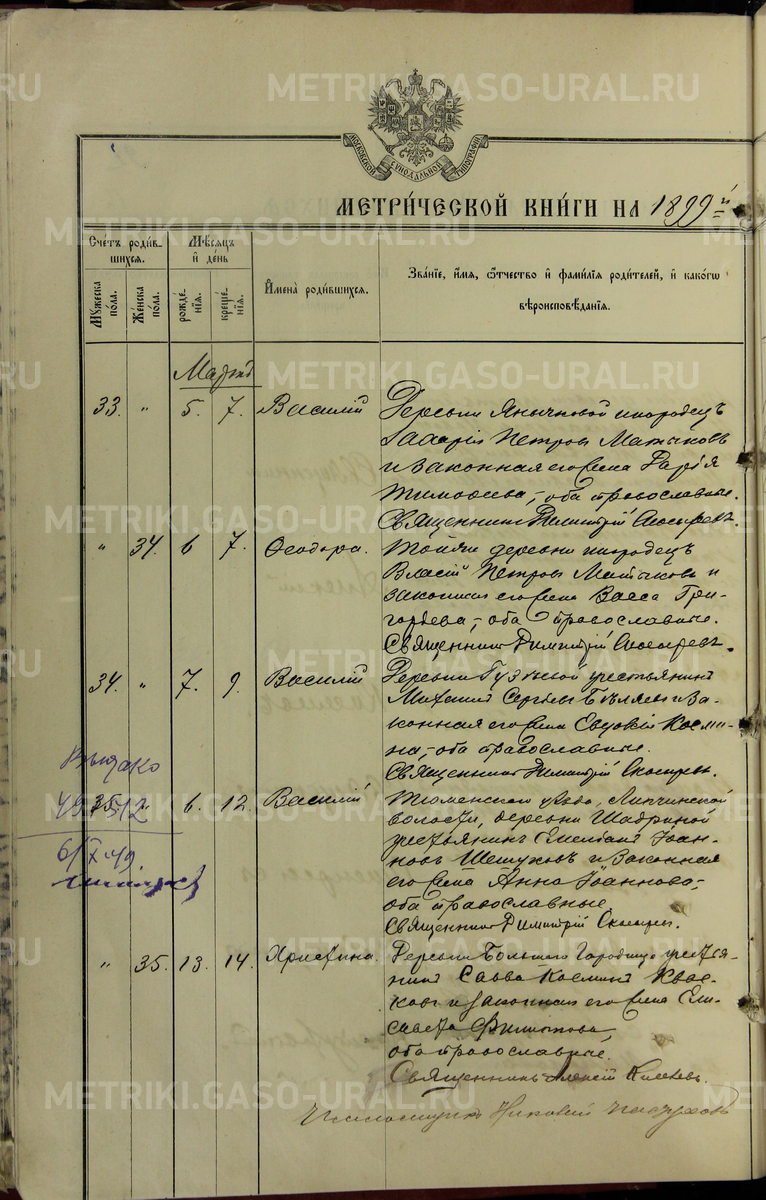 МОСКОВСКОЙ СѴНОДАЛЬНОЙ ТИПОГРАФІИ
МЕТРИ́ЧЕСКОЙ КНИ́ГИ НА 1899 й
Сче́тъ роди́в-
шихся.
Мѣ́сяцъ
и҆ де́нь
Мꙋ́жеска по́ла.
Же́нска по́ла.
рожде́-нїѧ.
креще́-нїѧ.
И҆мена̀ роди́вшихсѧ.
Зва́нїе, и҆́мѧ, ѻ҆́тчество и҆ фами́лїѧ роди́телей, и҆ како́гѡ
вѣроисповѣ́данїѧ.
Мартъ
33. " 5. 7. Василій Деревни Янычковой инородецъ
Захарій Петровъ Матыковъ
и законная его жена Дарія
Тимофеева, оба православные.
Священникъ Димитрій
" 34. 6 7. Ѳеодора. Той же деревни инородецъ
Власій Петровъ Матыковъ и
законная его жена Васса Гри-
горьева, оба православные.
Священникъ Димитрій
34. " 7. 9. Василій Деревни крестьянинъ
Михаилъ Сергѣевъ Бѣляевъ и за-
конная его жена Евдокія Косми-
на, оба православные.
Священникъ Димитрій
35. 6. 12. Василій Тюменскаго уѣзда, Липчинской
волости, деревни Шадриной
крестьянинъ Іоан-
новъ Шешуковъ и законная
его жена Анна Іоаннова,
оба православные.
Священникъ Димитрій
" 35. 13. 14. Христина. Деревни Большаго Городища крестья-
нинъ Савва Косминъ Квас-
ковъ и законная его жена Ели-
савета Филиппова
оба православные.
Священникъ Алексій
Псаломщикъ Николай
METRIKI.GASO-URAL.RU